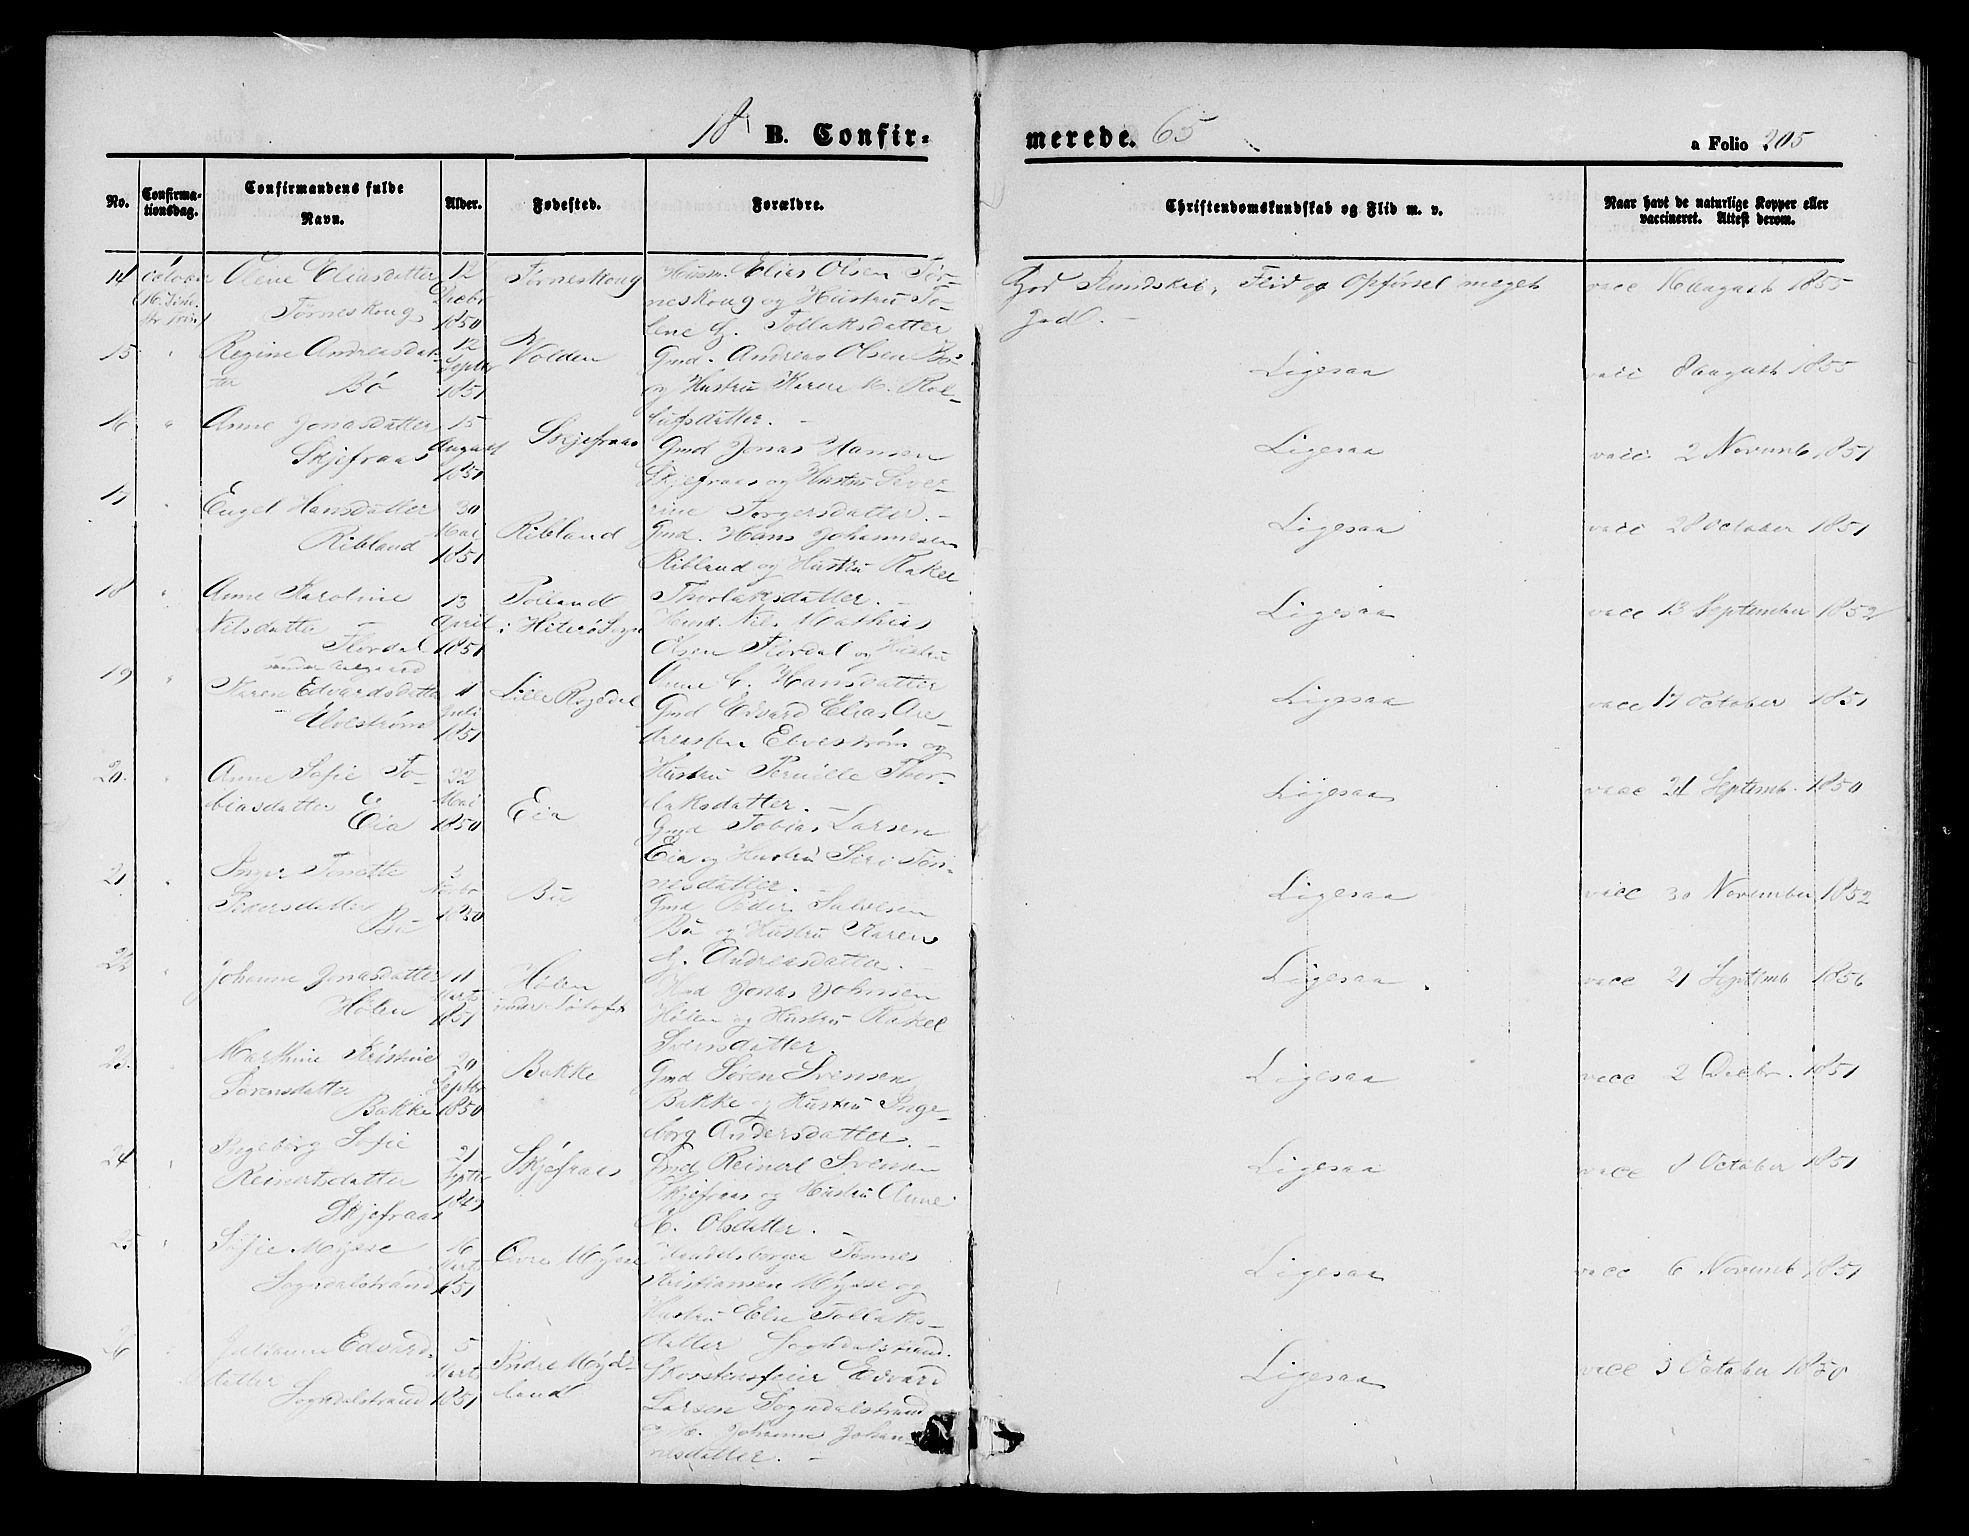 18 B. Confirmerede. 65
a Folio 205
No. Confirmationsdag. Confirmandens fulde Navn. Alder. Fødested. Forældre. Christendomskundskab og Flid m. v. Naar havt de naturlige Kopper eller vaccineret. Attest derom.
14 Oline Eliasdatter 12 Torneskoug Husm. Elias Olsen Tor-
Torneskoug Decbr neskoug og Hustru To-
1850 lene G. Tollaksdatter
God Kundskab, Flid og Opførsel meget vacc 16 August 1855
god. -
15 " Regine Andreasdat- 12 Volden Gmd. Andreas Olsen Bø
ter Bø Septbr og Hustru Karen M. Rol-
1851 lufsdatter. -
Ligesaa vacc 8 August 1855
16 " Anne Jonasdatter 15 Skjefraas Gmd Jonas Hansen
Skjefraas August Skjefraas og Hustru Seve-
1851 rine Torgersdatter. -
Ligesaa vacc 2 Novemb 1851
17 " Engel Hansdatter 30 Ribland Gmd. Hans Johannesen
Ribland Mai Ribland og Hustru Rakel
1851 Thorlaksdatter. -
Ligesaa vacc 28 October 1851
18 " Anne Karoline 13 i Hiterø Sogn Nils Mathias
Nilsdatter April Olsen Flordal og Hustru
Flordal 1851 Anne C. Hansdatter
Ligesaa vacc 13 September 1852
19 " Karen Edvardsdatter 11 Lille Rægedal Gmd Edvard Elias An-
Elvestrøm Juli dreassen Elvestrøm og
1851 Hustru Pernille Thor-
laksdatter. -
Ligesaa vacc 17 October 1851
20. " Anne Sofie To- 22 Eia Gmd Tobias Larsen
biasdatter Mai Eia og Hustru Siri Tøn-
Eia 1850 nesdatter. -
Ligesaa vacc 21 Septemb. 1850
21 " Inger Tonette Novbr Bø Gmd Peder Salvesen
Pedersdatter 1850 Bø og Hustru Karen
Bø G. Andreasdatter. -
Ligesaa vacc 30 November 1852
22 " Johanne Jonasdatter 11 Hølen Jonas Johnsen
Hølen Marts under Hølen og Hustru Rakel
1851 Svensdatter.
Ligesaa vacc 21 Septemb 1856
23. " Marthine Kristine 20 Bakke Gmd Søren Svensen
Sørensdatter Septbr Bakke og Hustru Inge-
Bakke 1850 borg Andersdatter. -
Ligesaa vacc 2 Decbr. 1851
24 " Ingeborg Sofie 21 Skjefraas Gmd Reinert Svensen
Reinertsdatter Septbr Skjefraas og Hustru Anne
Skjefraas 1849 M. Olsdatter. -
Ligesaa vacc 8 October 1851
25 " Sofie Mysse 16 Øvre Mysse Handelsborger Tønnes
Sogndalstrand Marts Kristiansen Mysse og
1851 Hustru Else Tollaks-
datter Sogndalstrand.
Ligesaa vacc 6 Novemb 1851
26 " Julianne Edvard- 5 Indre Myd- Skorstensfeier Edvard
datter Marts land Larsen Sogndalstrand
Sogndalstrand 1851 og H. Johanne Johan-
nesdatter. -
Ligesaa vacc 3 October 1850